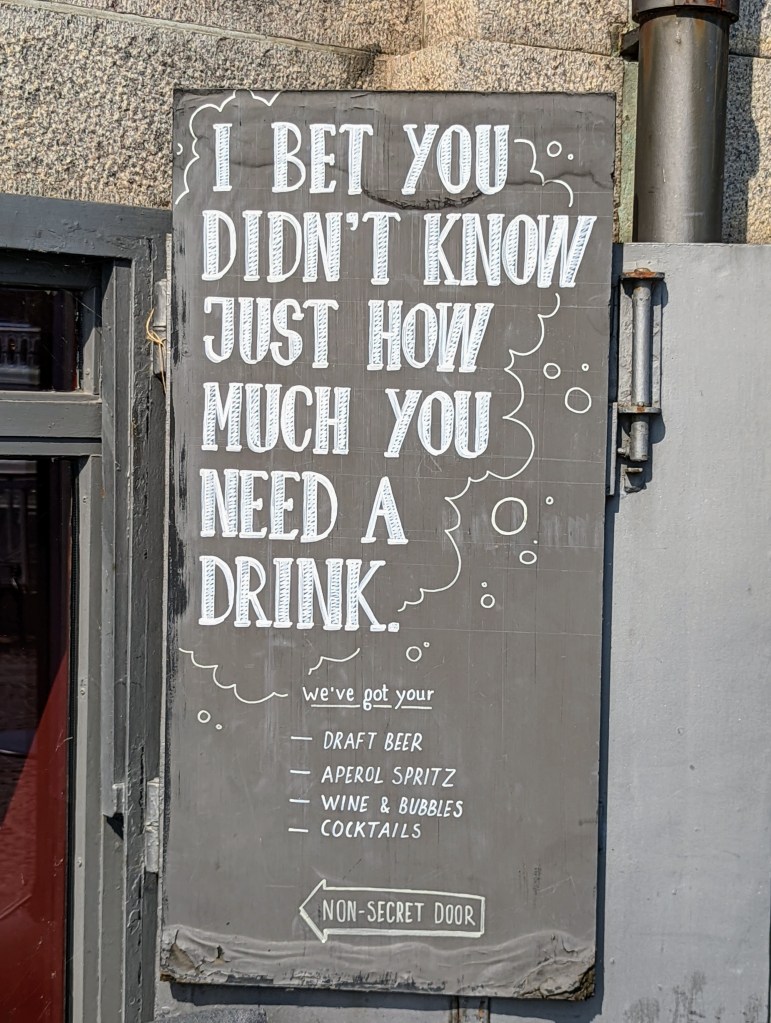 I BET YOU
DIDN'T KNOW
JUST HOW
MUCH YOU
NEED A
DRINK.
we've got your
— DRAFT BEER
— APEROL SPRITZ
— WINE & BUBBLES
— COCKTAILS
NON-SECRET DOOR